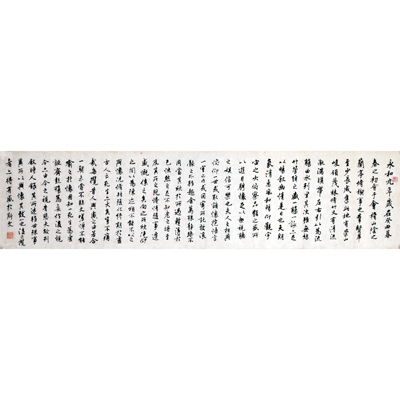 永和九年歲在癸丑暮
春之初會于會稽山陰之
蘭亭脩禊事也羣賢畢
至少長咸集此地有崇山
峻領茂林脩竹又有清流
激湍暎帶左右引以為流
觴曲水列坐其次雖無絲
竹管絃之盛一觴一詠亦足
以暢敘幽情是日也天朗
氣清惠風和暢仰觀宇
宙之大俯察品類之盛所
以遊目騁懷足以極視聽
之娛信可樂也夫人之相與
俯仰一世或取諸懷抱悟言
一室之內或因寄所託放浪
形骸之外雖趣舍萬殊靜躁不
同當其欣於所遇暫得於
己快然自足不知老之將至
及其所之既惓情隨事遷
感慨係之矣向之所欣俛仰
之間以為陳迹猶不能不以之
興懷況脩短隨化終期於盡
古人云死生亦大矣豈不痛
哉每攬昔人興感之由若合
一契未嘗不臨文嗟悼不能
喻之於懷固知一死生為虛
誕齊彭殤為妄作後之視
今亦由今之視昔悲夫故列
敘時人錄其所述雖世殊事
異所以興懷其致一也後之覽
者亦將有感於斯文